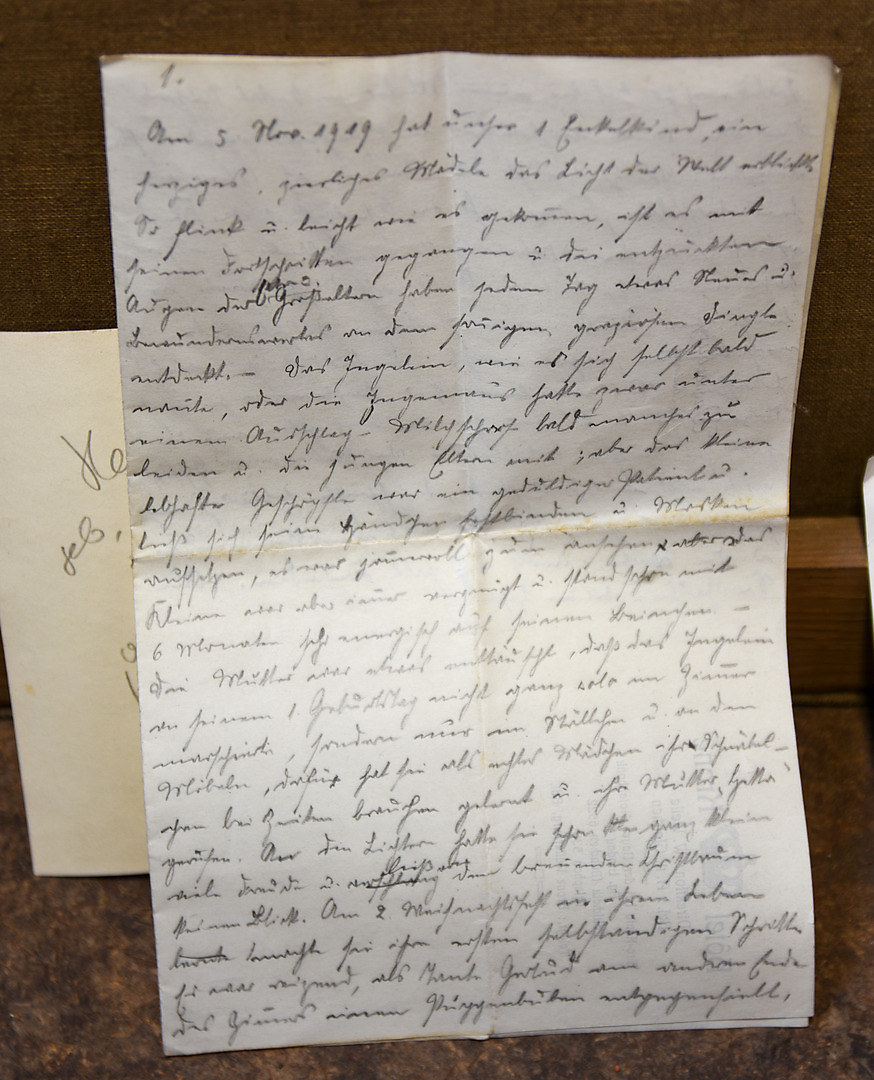 1.
Am 5 Nov. 1919 hat unser 1 Enkelkind, ein
herziges, zierliches Mädele das Licht der Welt erblickt.
So flink u. leicht wie es gekommen, ist es mit
seinen Fortschritten gegangen u. die entzückten
Augen der Großeltern haben jeden Tag etwas Neues u.
Bewundernswertes an dem sonnigen, graziösen Dingle
entdeckt. – Das Ingelein, wie es sich selbst bald
nannte, oder die Ingemaus hatte zwar unter
einem Ausschlag – Milchschorf bald manches zu
leiden u. die jungen Eltern mit; aber das kleine
lebhafte Geschöpfle war ein geduldiger Patient u.
ließ sich seine Händchen festbinden u. Masken
aufsetzen, es war jammervoll zum ansehen, aber das
Kleine war aber immer vergnügt u. stand schon mit
6 Monaten sehr energisch auf seinen Beinchen. –
Die Mutter war etwas enttäuscht, daß das Ingelein
an seinem 1. Geburtstag nicht ganz solo im Zimmer
marschierte, sondern nur im Ställchen u. an den
Möbeln, dafür hat sie als echtes Mädchen ihr Schnäbel-
chen bei Zeiten brauchen gelernt u. ihre Mutter
gerufen. An den Lichtern hatte sie schon ganz klein
viele Freude u. dem brennenden Christbaum
keinen Blick. Am 2 Weihnachtsfest in ihrem Leben
lernte machte sie ihre ersten selbständigen Schritte
Es war reizend, als Tante Gertrud am anderen Ende
des Zimmers einen Puppenbuben entgegenhielt,
geb.